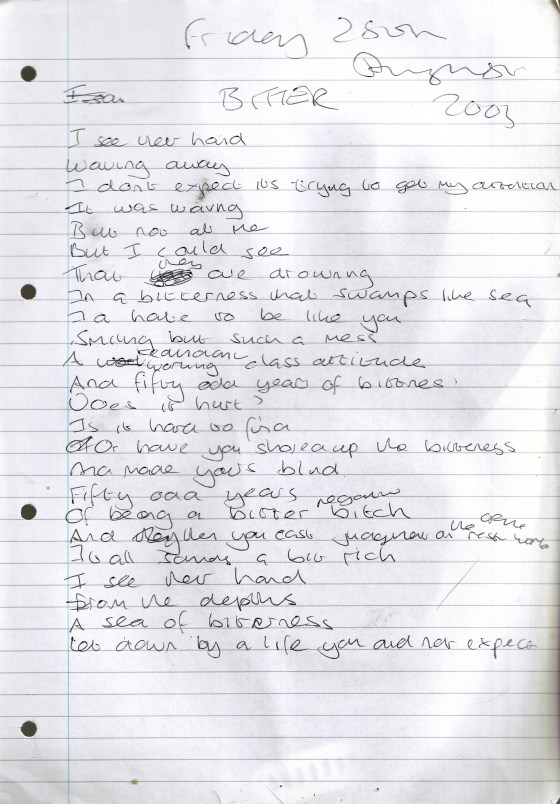 Friday 25th
August
BITTER 2003
I see her hand
Waving away
I dont expect its trying to get my attention
It was waving
But not at me
But I could see
That they are drowning
In a bitterness that swamps like sea
I'd hate to be like you
Smiling but such a mess
A working class attitude
And fifty odd years of bittnes
Does it hurt?
Is it hard to find
Or have you shored up the bitterness
And made yours blind
Fifty odd years
Of being a bitter negative bitch
And when you cast judgment on the
It all sounds a bit rich
I see her hand
From the depths
A sea of bitterness
Let down by a life you did not expect